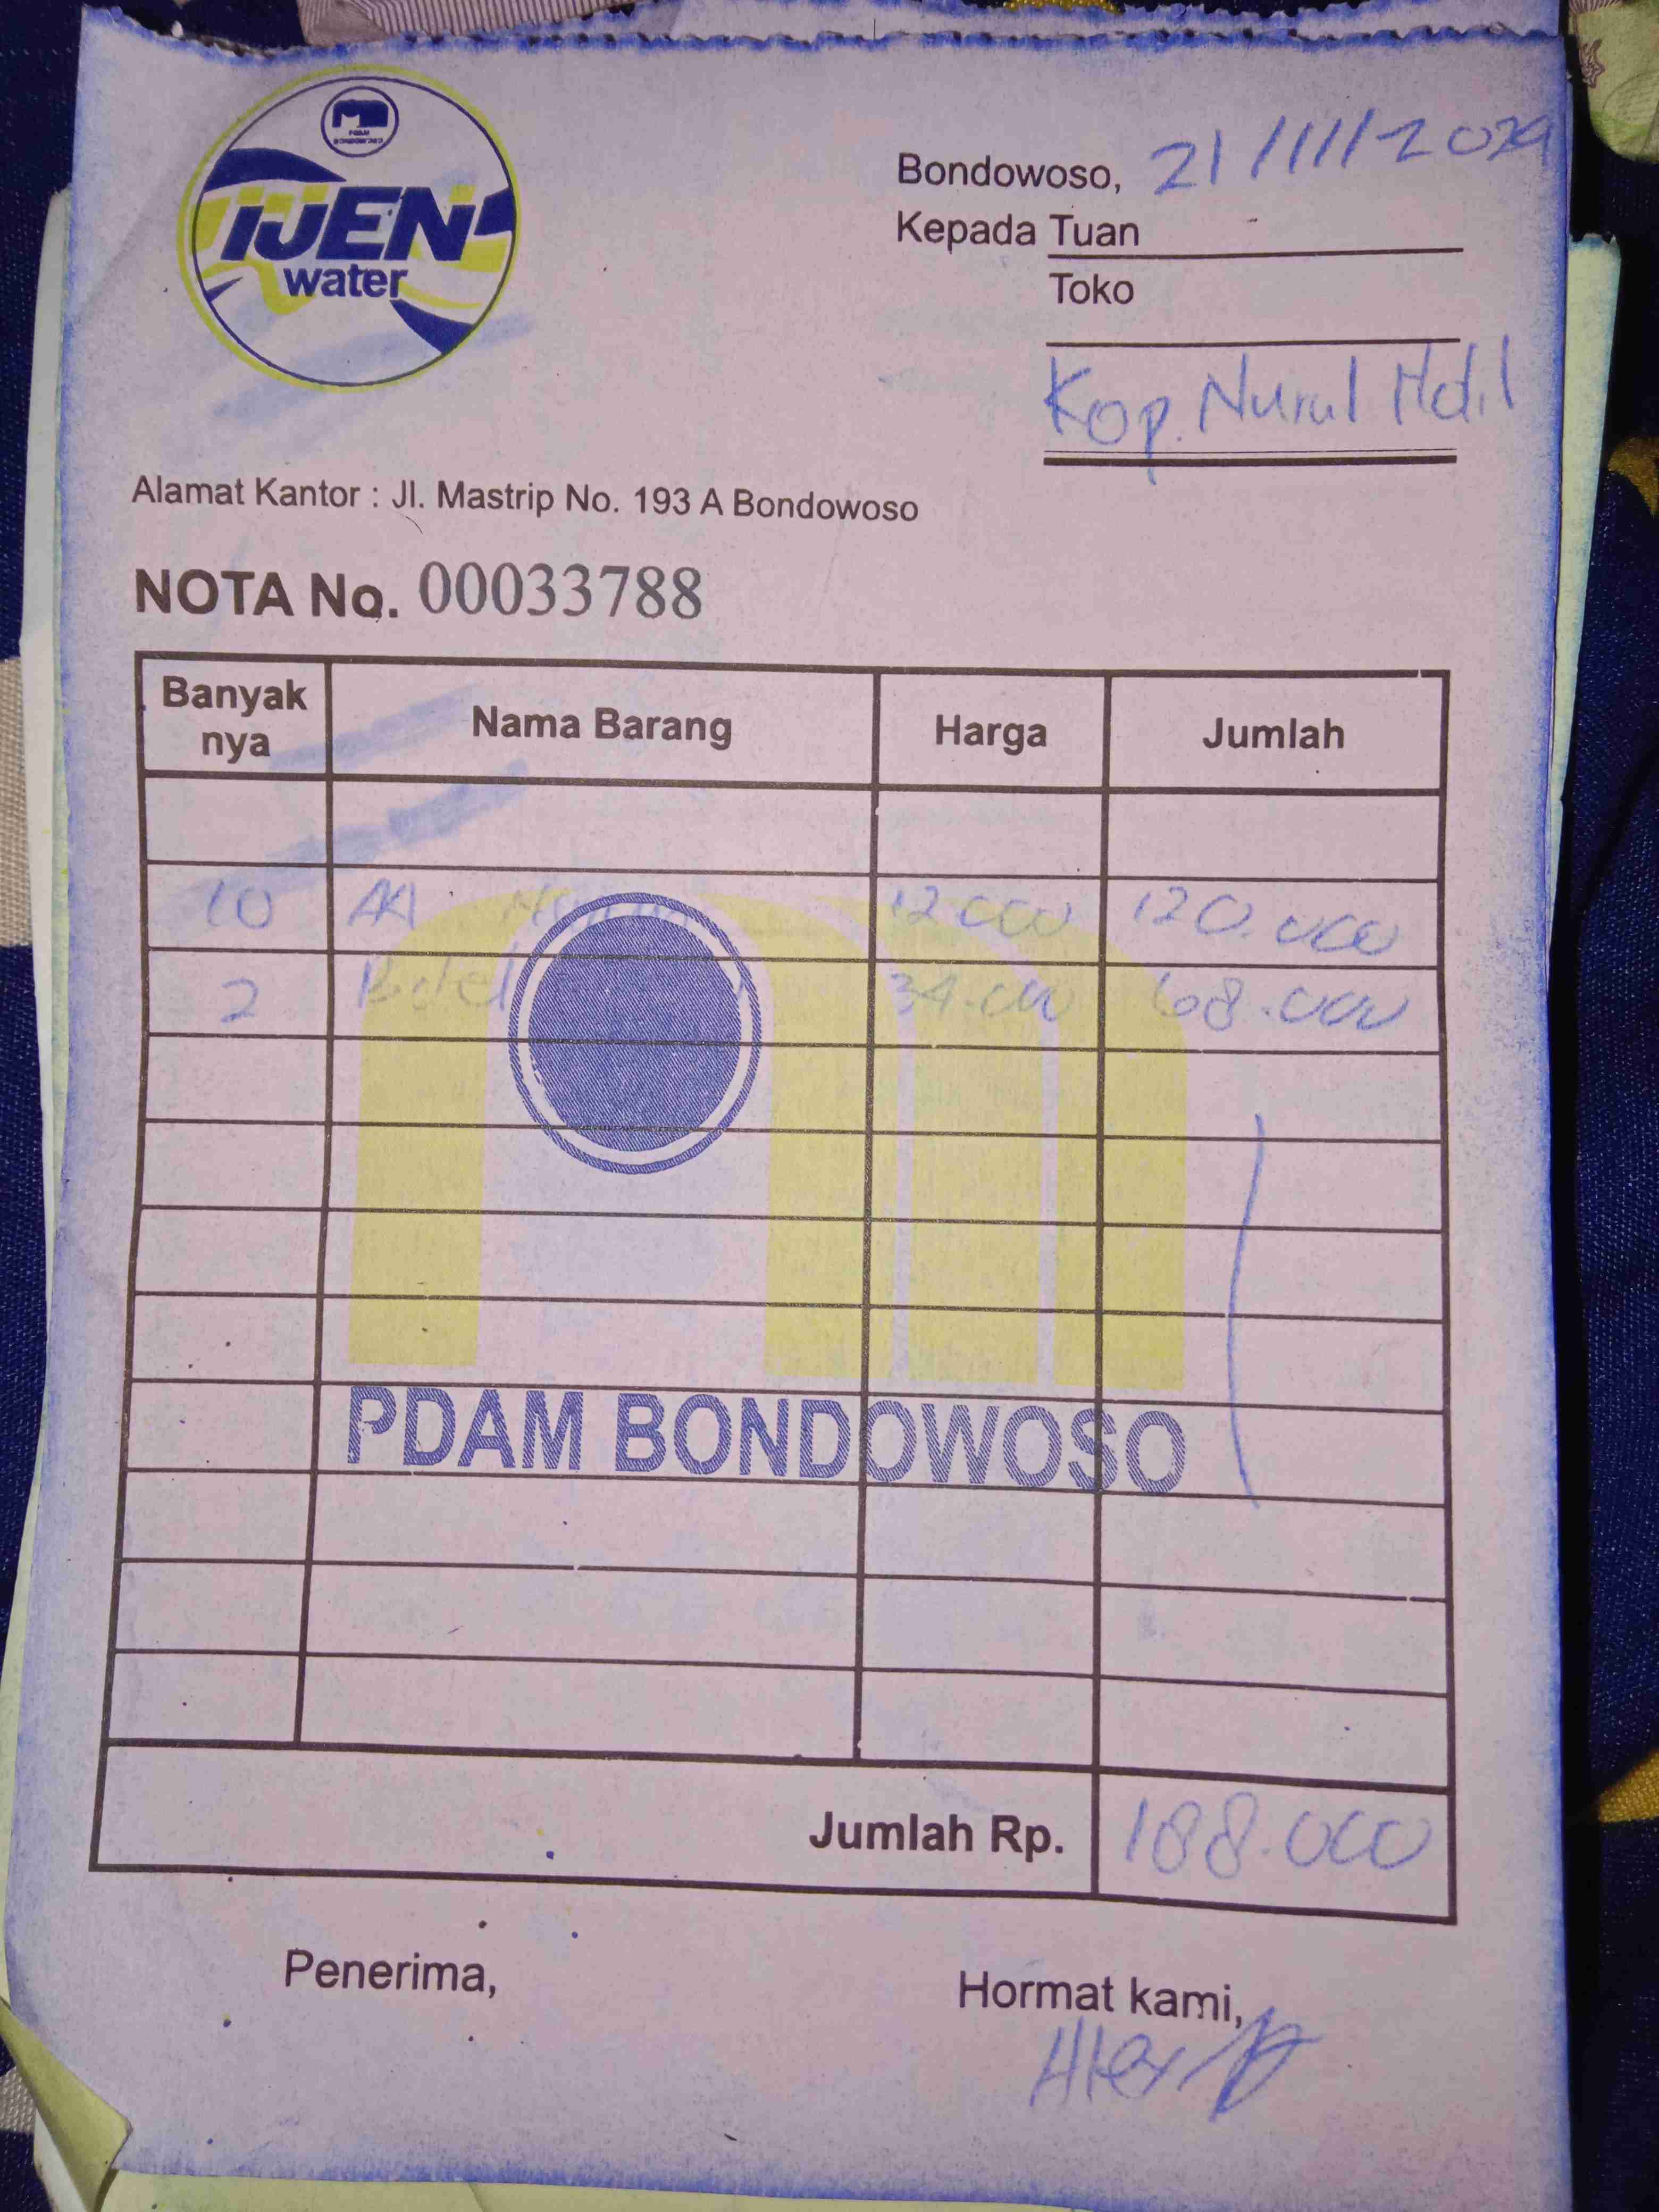 PDAM
BONDOWOSO
IJEN
water
Bondowoso, 21/11/2024
Kepada Tuan
Toko
Kop. Nurul Hdil
Alamat Kantor : Jl. Mastrip No. 193 A Bondowoso
NOTA No. 00033788
Banyak nya Nama Barang Harga Jumlah
10 12.000 120.000
2 Botol 34.000 68.000
PDAM BONDOWOSO
Jumlah Rp. 188.000
Penerima,
Hormat kami,